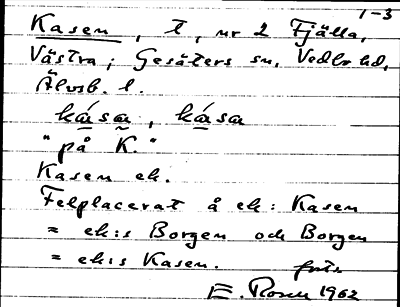 1-3
Kasen, t, nr 2 Fjälla,
Västra; Gesäters sn, Vedbo hd,
Älvsb. l.
kása, kása
"på K."
Kasen ek.
Felplacerat å ek: Kasen
= ek:s Borgen och Borgen
= ek:s Kasen.
forts
E. 1962